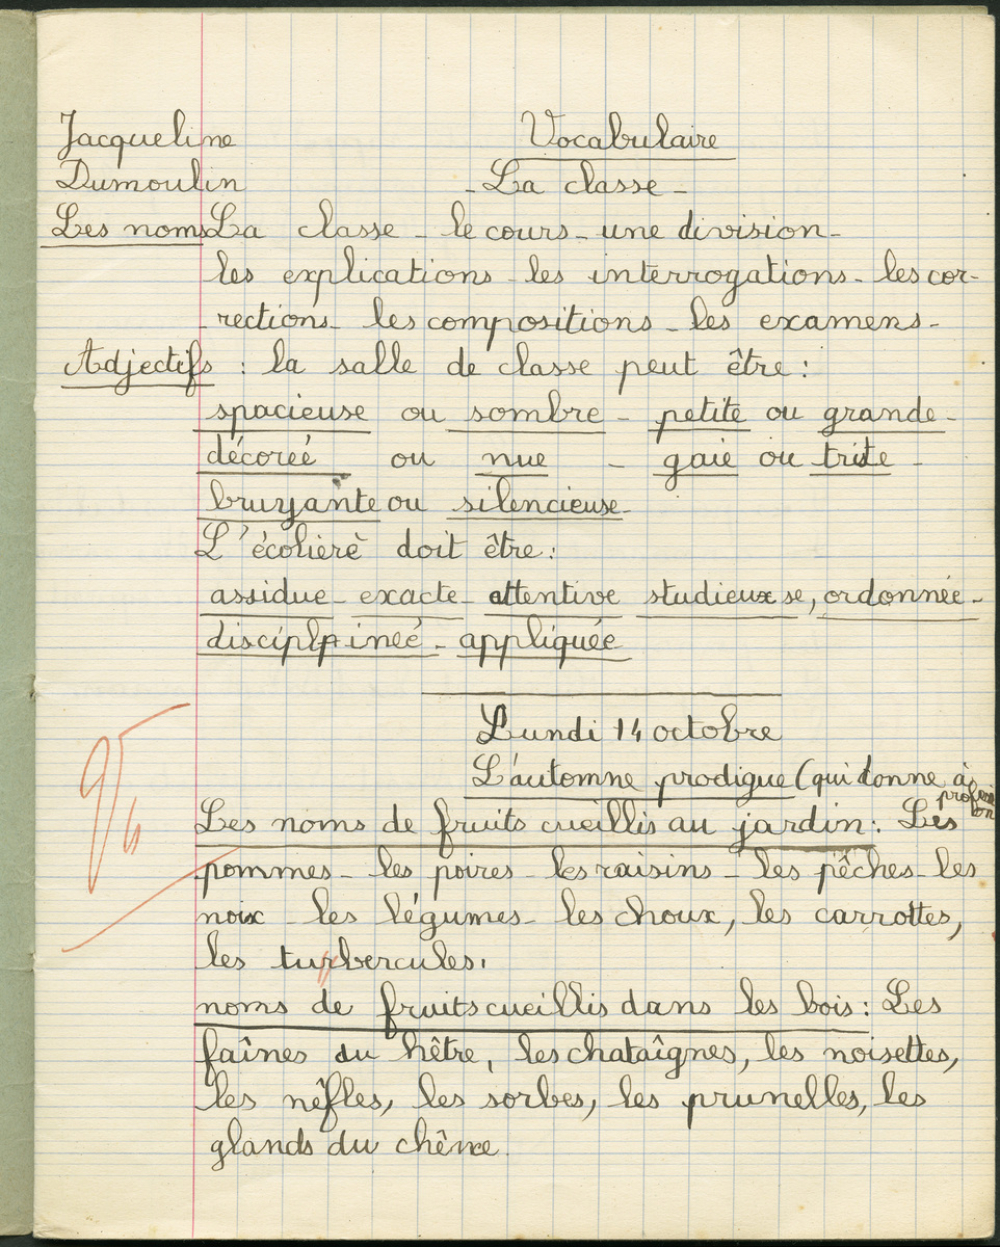 Jacqueline Vocabulaire
Dumoulin - La classe -
Les noms La classe - le cours - une division -
les explications - les interrogations - les cor-
-rections - les compositions - les examens -
Adjectifs : la salle de classe peut être :
spacieuse ou sombre - petite ou grande -
décoreé ou nue - gaie ou triste -
bruyante ou silencieuse -
L'écolière doit être :
assidue - exacte - attentive studieuse, ordonnée -
disciplineé - appliquée
Lundi 14 octobre
L'automne prodigue (qui donne à
Les noms de fruits cueillis au jardin : Les
pommes - les poires - les raisins - les pêches - les
noix - les légumes - les choux, les carrottes,
les turbercules.
noms de fruits cueillis dans les bois : Les
faînes du hêtre, les chataîgnes, les noisettes,
les nêfles, les sorbes, les prunelles, les
glands du chêne.